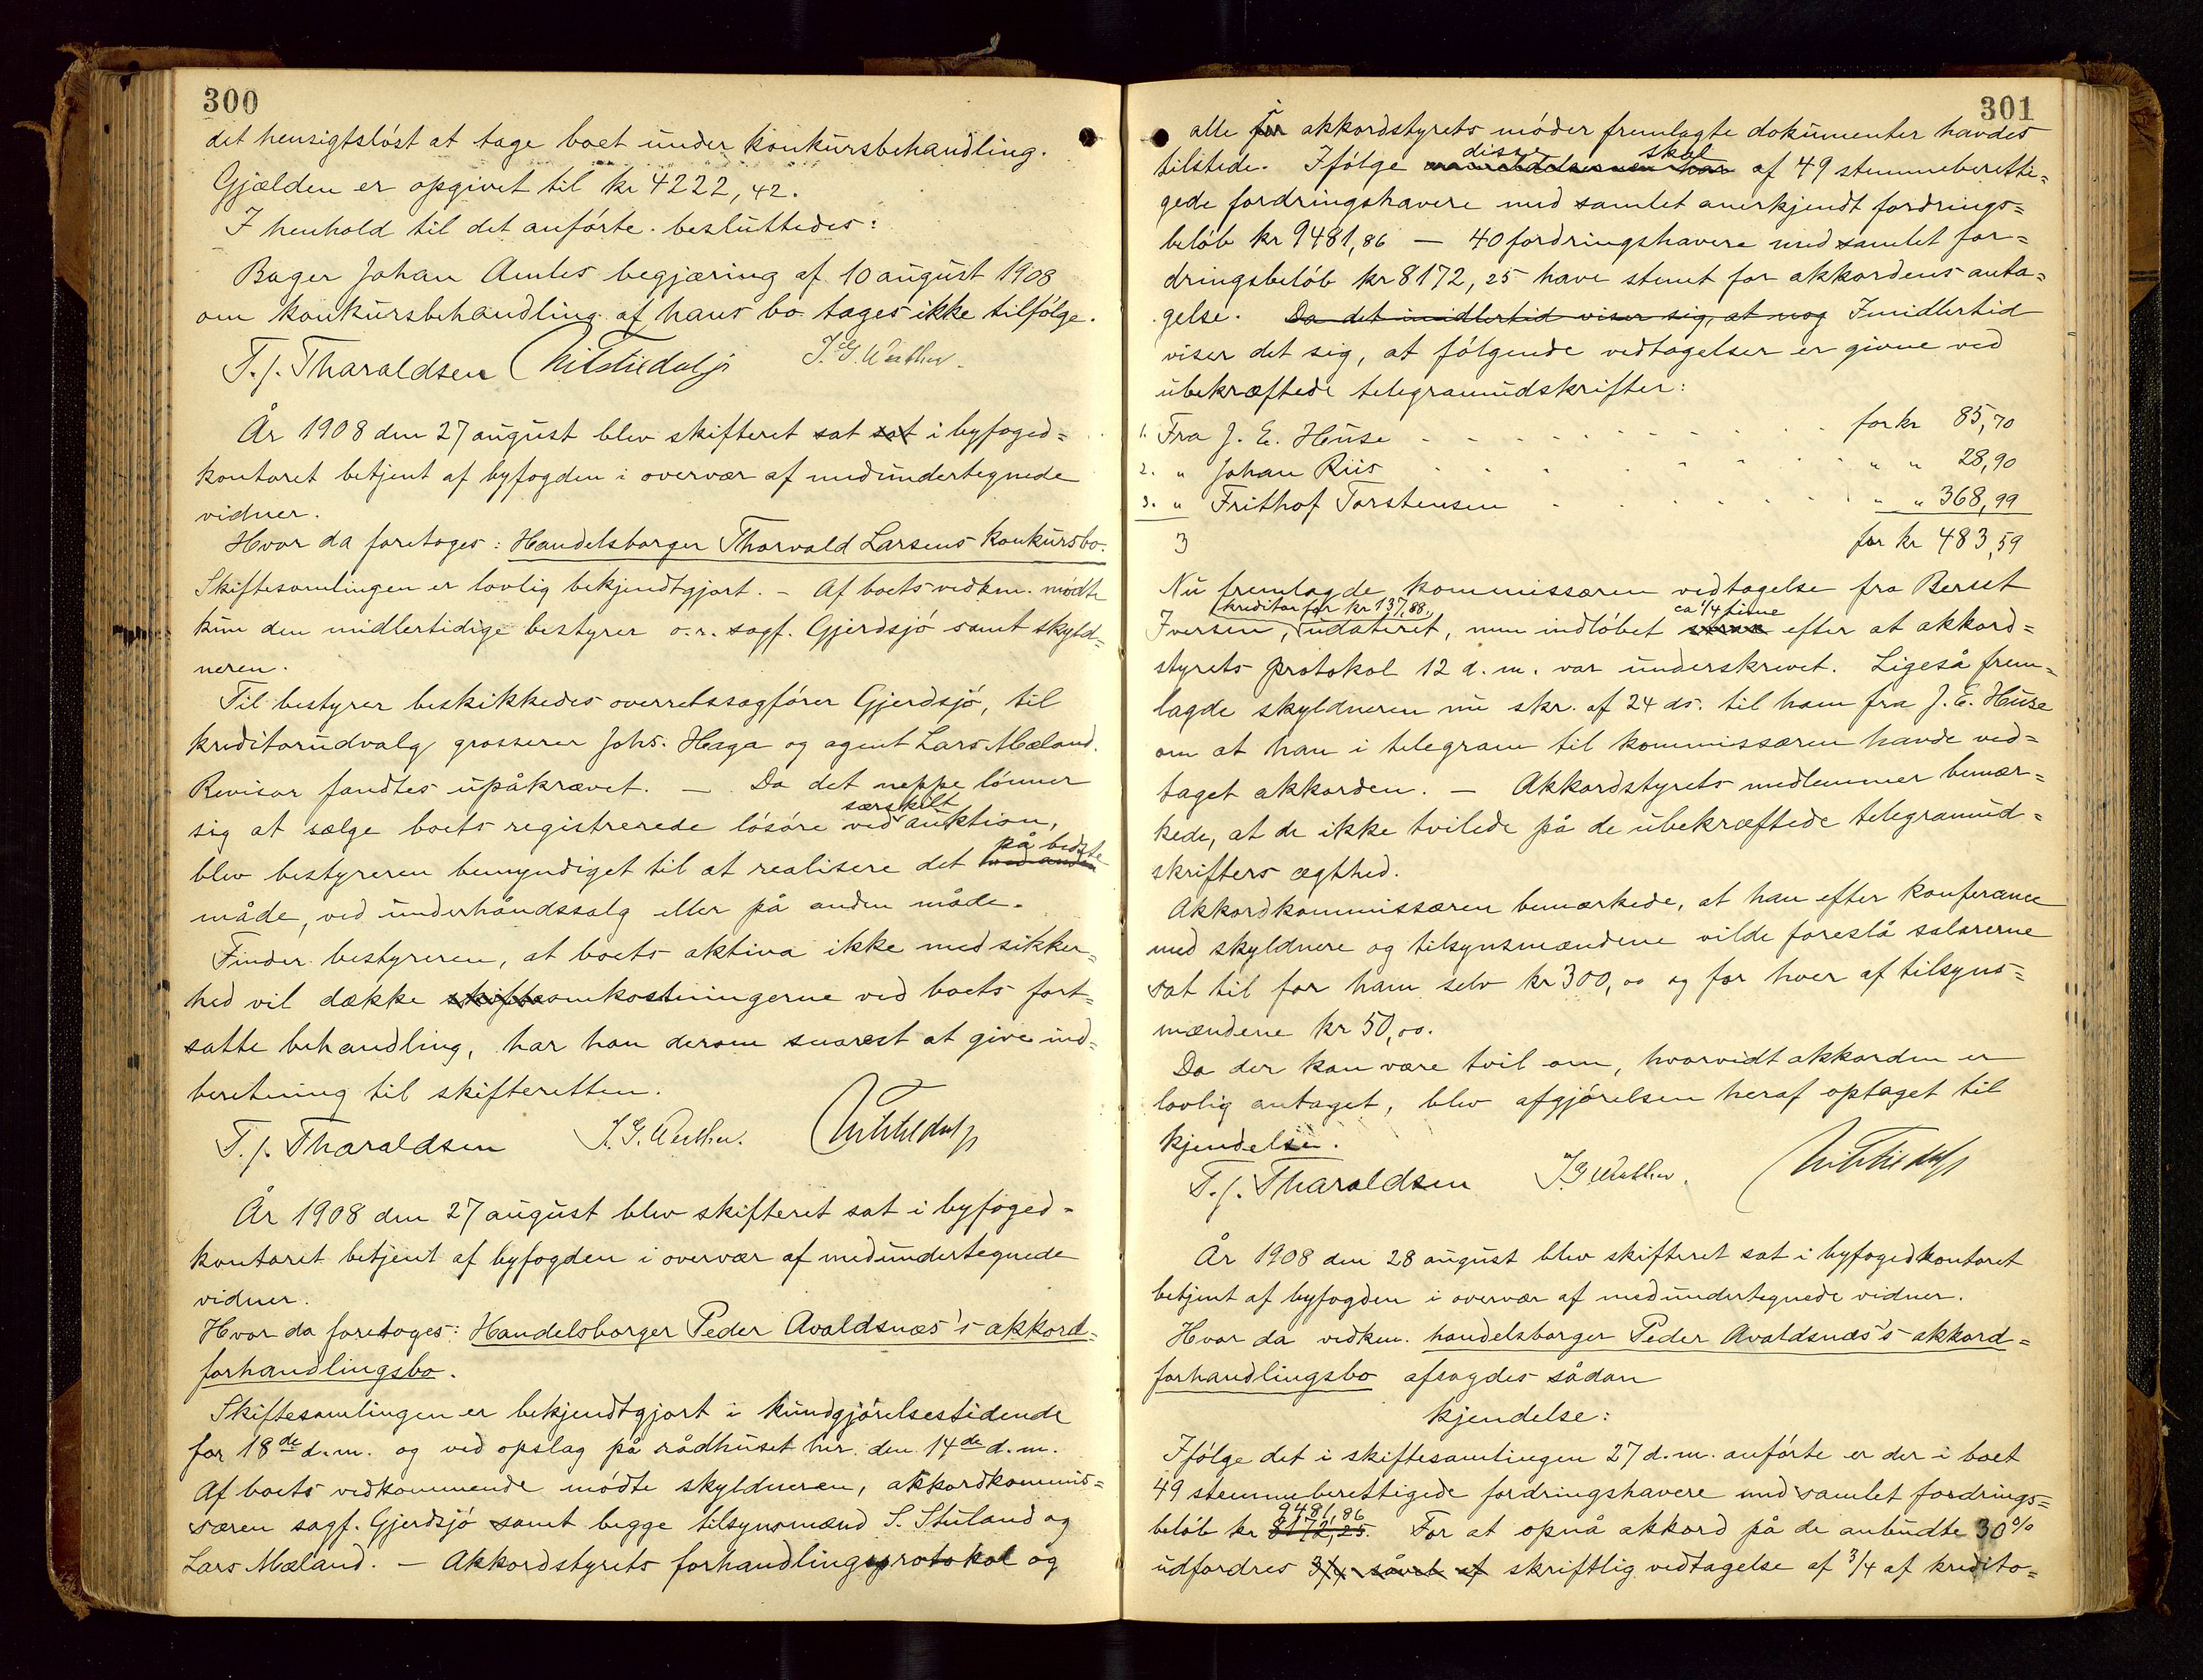 300
det hensigtsløst at tage boet under konkursbehandling.
Gjælden er opgivet til kr 4222,42.
I henhold til det anførte besluttedes:
Bager Johan Amlis begjæring af 10 august 1908
om konkursbehandling af hans bo tages ikke tilfølge.
T. J. Tharaldsen
År 1908 den 27 august blev skifteret sat sat i byfoged=
kontoret betjent af byfogden i overvær af medundertegnede
vidner.
Hvor da foretoges: Handelsborger Thorvald Larsens konkursbo.
Skiftesamlingen er lovlig bekjendtgjort. – Af boets vedkm. mødte
kun den midlertidige bestyrer o.r. sagf. Gjerdsjø samt skyld=
neren.
Til bestyrer beskikkedes overretssagfører Gjerdsjø, til
kreditorudvalg grosserer Johs. Haga og agent Lars Mæland.
Revisor fandtes upåkrævet. – Da det neppe lønner
sig at sælge boets registrerede løsøre ved særskilt auktion,
blev bestyreren bemyndiget til at realisere det på bedste
måde, ved underhåndssalg eller på anden måde.
Finder bestyreren, at boets aktiva ikke med sikker=
hed vil dække skiftesomkostningerne ved boets fort=
satte behandling, har han derom snarest at give ind=
beretning til skifteretten.
T. J. Tharaldsen
År 1908 den 27 august blev skifteret sat i byfoged=
kontoret betjent af byfogden i overvær af medundertegnede
vidner.
Hvor da foretoges: Handelsborger Peder Avaldsnæs's akkord=
forhandlingsbo.
Skiftesamlingen er bekjendtgjort i kundgjørelsestidende
for 18de d.m. og ved opslag på rådhuset her den 14de d.m.
Af boets vedkommende mødte skyldneren, akkordkommis=
særen sagf. Gjerdsjø samt begge tilsynsmænd S. Stuland og
Lars Mæland. – Akkordstyrets forhandlingsprotokol og
301
alle i akkordstyrets møder fremlagte dokumenter havdes
tilstede. Ifølge disse skal af 49 stemmeberetti=
gede fordringshavere med samlet anerkjendt fordrings=
beløb kr 9481,86 – 40 fordringshavere med samlet for=
dringsbeløb kr 8172,25 have stemt for akkordens anta=
gelse. Da det imidlertid viser sig, at nog Imidlertid
viser det sig, at følgende vedtagelser er givne ved
ubekræftede telegramudskrifter:
1. Fra J. E. Huse for kr 85,70
2. " Johan Riis " " 28,90
3. " Frithof Torstensen " " 368,99
3 for kr 483,59
Nu fremlagde kommissæren vedtagelse fra Berset
Iversen, kreditor for kr 137,88, udateret, men indløbet ca 1/4 time efter at akkord=
styrets protokol 12 d.m. var underskrevet. Ligeså frem=
lagde skyldneren nu skr. af 24 ds. til ham fra J. E. Huse
om at han i telegram til kommissæren havde ved=
taget akkorden. – Akkordstyrets medlemmer bemær=
kede, at de ikke tvilede på de ubekræftede telegramud=
skrifters ægthed.
Akkordkommissæren bemærkede, at han efter konferance
med skyldnere og tilsynsmændene vilde foreslå salærerne
sat til for ham selv kr 300,00 og for hver af tilsyns=
mændene kr 50,00.
Da der kan være tvil om, hvorvidt akkorden er
lovlig antaget, blev afgjørelsen heraf optaget til
kjendelse.
T. J. Tharaldsen
År 1908 den 28 august blev skifteret sat i byfogedkontoret
betjent af byfogden i overvær af medundertegnede vidner.
Hvor da vedkm. handelsborger Peder Avaldsnæs's akkord=
forhandlingsbo afsagdes sådan
kjendelse:
Ifølge det i skiftesamlingen 27 d.m. anførte er der i boet
49 stemmeberettigede fordringshavere med samlet fordrings=
beløb kr 8172,25 9481,86. For at opnå akkord på de anbudte 30%
udfordres 3/4 såvel af skriftlig vedtagelse af 3/4 af kredito=